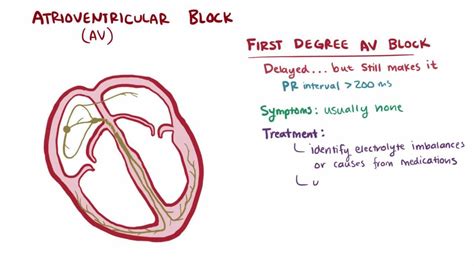 ATRIOVENTRICULAR BLOCK
(AV)
FIRST DEGREE AV BLOCK
Delayed... but still makes it
PR interval > 200 ms
Symptoms: usually none
Treatment:
identify electrolyte imbalances
or causes from medications